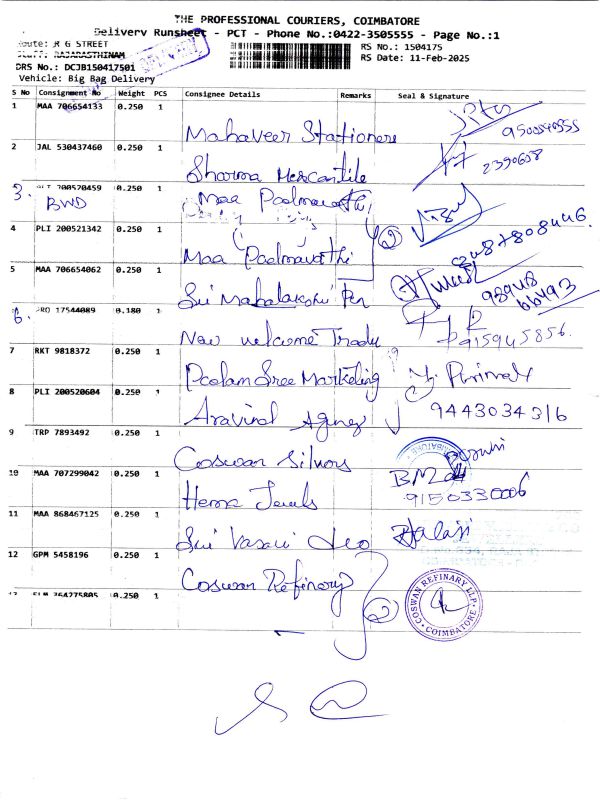 THE PROFESSIONAL COURIERS, COIMBATORE
Delivery Runsheet - PCT - Phone No.:0422-3505555 - Page No.:1
Route: R G STREET
RS No.: 1504175
Staff: RAJARASTHINAM
RS Date: 11-Feb-2025
DRS No.: DCJB150417501
Vehicle: Big Bag Delivery
S No Consignment No Weight PCS Consignee Details Remarks Seal & Signature
1 MAA 706654133 0.250 1
Mahaveer Stationers
2 JAL 530437460 0.250 1
Sharma Mercantile
2390608
3. 200520459 0.250 1
BWD Maa Padmavathi
4 PLI 200521342 0.250 1
Maa Padmavathi 2
5 MAA 706654062 0.250 1
Sri Mahalakshmi Pen
98948
66493
6. PRO 17544089 0.180 1
New welcome Trade
915945856.
7 RKT 9818372 0.250 1
Poolam Sree Marketing
8 PLI 200520604 0.250 1
Aravind Agency
9443034316
9 TRP 7893492 0.250 1
Coswan Silvers
10 MAA 707299042 0.250 1
Hema Jewels
9150330006
11 MAA 868467125 0.250 1
Sri Vasavi
Balaji
12 GPM 5458196 0.250 1
Coswan Refinery
COSWAN REFINARY LLP
COIMBATORE
13 ELM 364275805 0.250 1
2